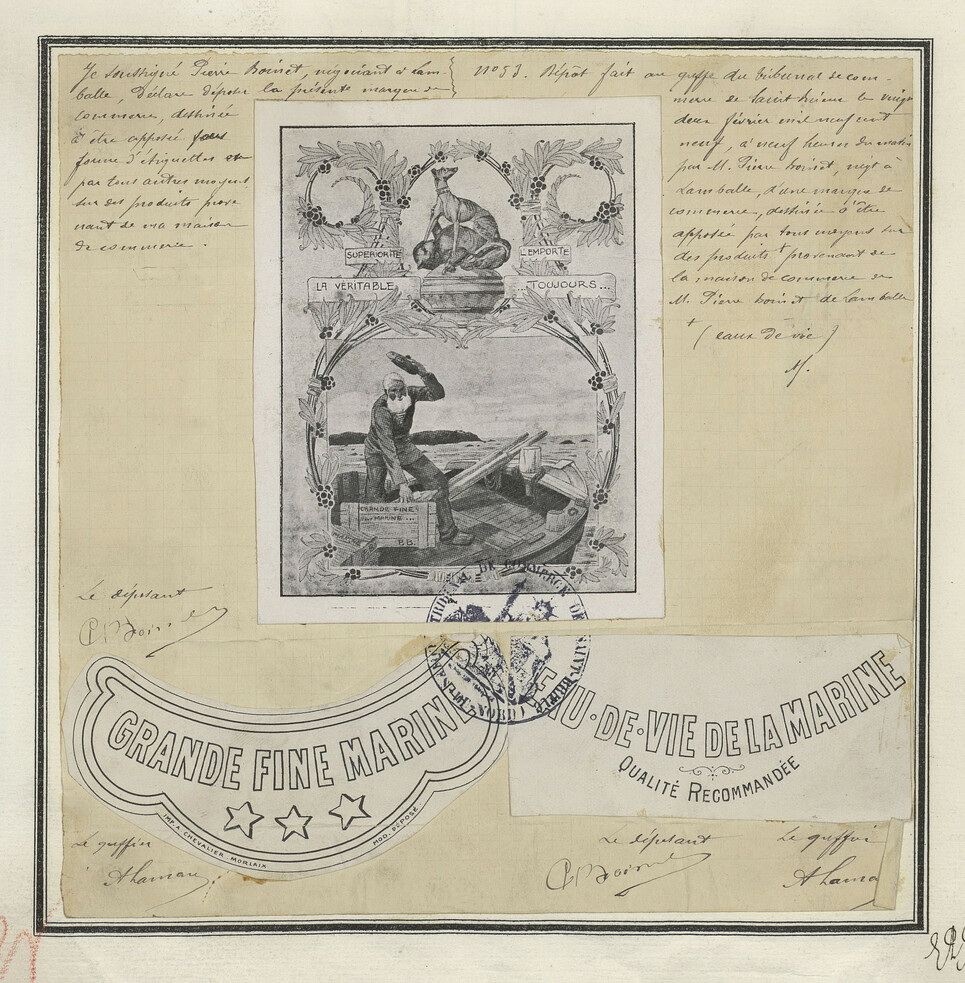 Je soussigné Pierre Boinet, négociant à Lam-
balle, Déclare déposer la présente marque de
commerce, destinée
à être apposée sous
forme d'étiquettes et
par tous autres moyens
sur des produits prove
nant de ma maison
de commerce.
n° 53. Dépôt fait au greffe du tribunal de com-
merce de Saint Brieuc le vingt
deux février mil neuf cent
neuf, à neuf heures du matin
par M. Pierre Boinet, négt à
Lamballe, d'une marque de
commerce, destinée à être
apposée par tous moyens sur
des produits + provenant de
la maison de commerce de
M. Pierre Boinet de Lamballe
+ (eaux de vie)
SUPERIORITÉ
L'EMPORTE
LA VÉRITABLE
...TOUJOURS...
GRANDE FINE
MARINE...
B.B.
Le déposant
PBoinet
TRIBUNAL DE COMMERCE DE SAINT-BRIEUC
(NORD)
GRANDE FINE MARINE
IMP. A. CHEVALIER - MORLAIX
MOD. DÉPOSÉ
EAU-DE-VIE DE LA MARINE
QUALITÉ RECOMMANDÉE
Le greffier
Le déposant
PBoinet
Le greffier